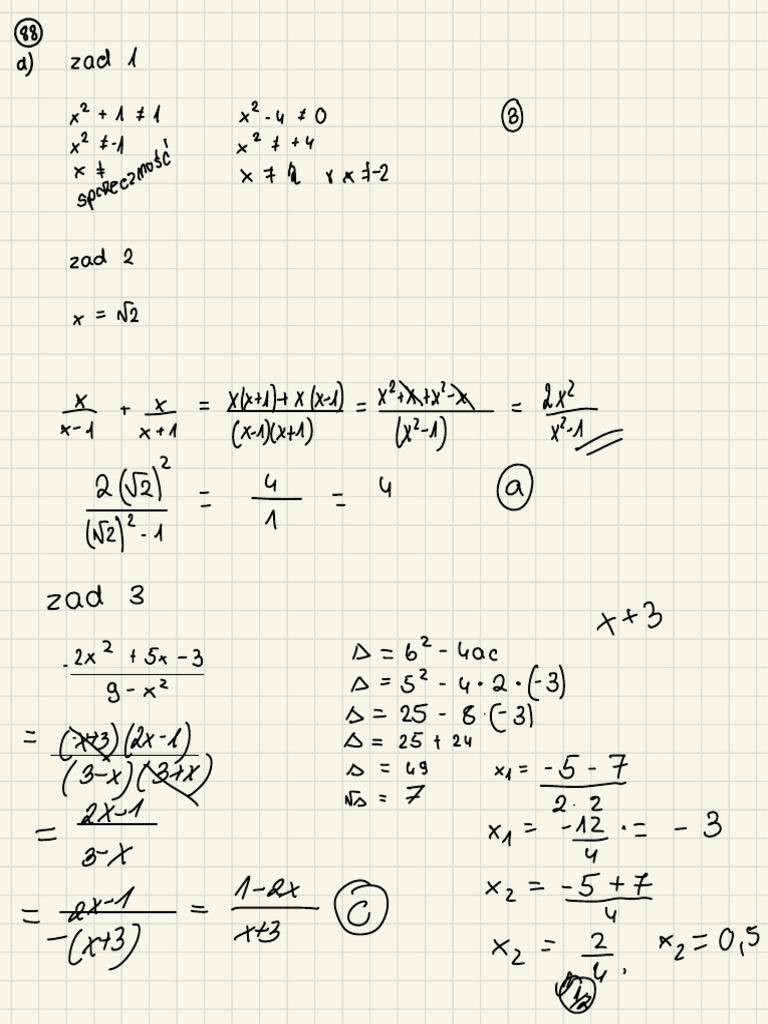 88
a) zad 1
x² + 1 ≠ 1
x² ≠ -1
x ≠
sprzeczność
x² - 4 ≠ 0
x² ≠ +4
x ≠ 2 ∨ x ≠ -2
B
zad 2
x = √2
x/(x-1) + x/(x+1) = (x(x+1)+x(x-1))/((x-1)(x+1)) = (x²+x+x²-x)/(x²-1) = 2x²/(x²-1)
2(√2)²/((√2)²-1) = 4/1 = 4
a
zad 3
(2x² + 5x - 3)/(9 - x²)
= ((x+3)(2x-1))/((3-x)(3+x))
= (2x-1)/(3-x)
= (2x-1)/(-(x+3)) = (1-2x)/(x+3)
C
x+3
Δ = b² - 4ac
Δ = 5² - 4·2·(-3)
Δ = 25 - 8·(-3)
Δ = 25 + 24
Δ = 49
√Δ = 7
x₁ = (-5-7)/(2·2)
x₁ = -12/4 = -3
x₂ = (-5+7)/4
x₂ = 2/4, x₂ = 0,5
1/2